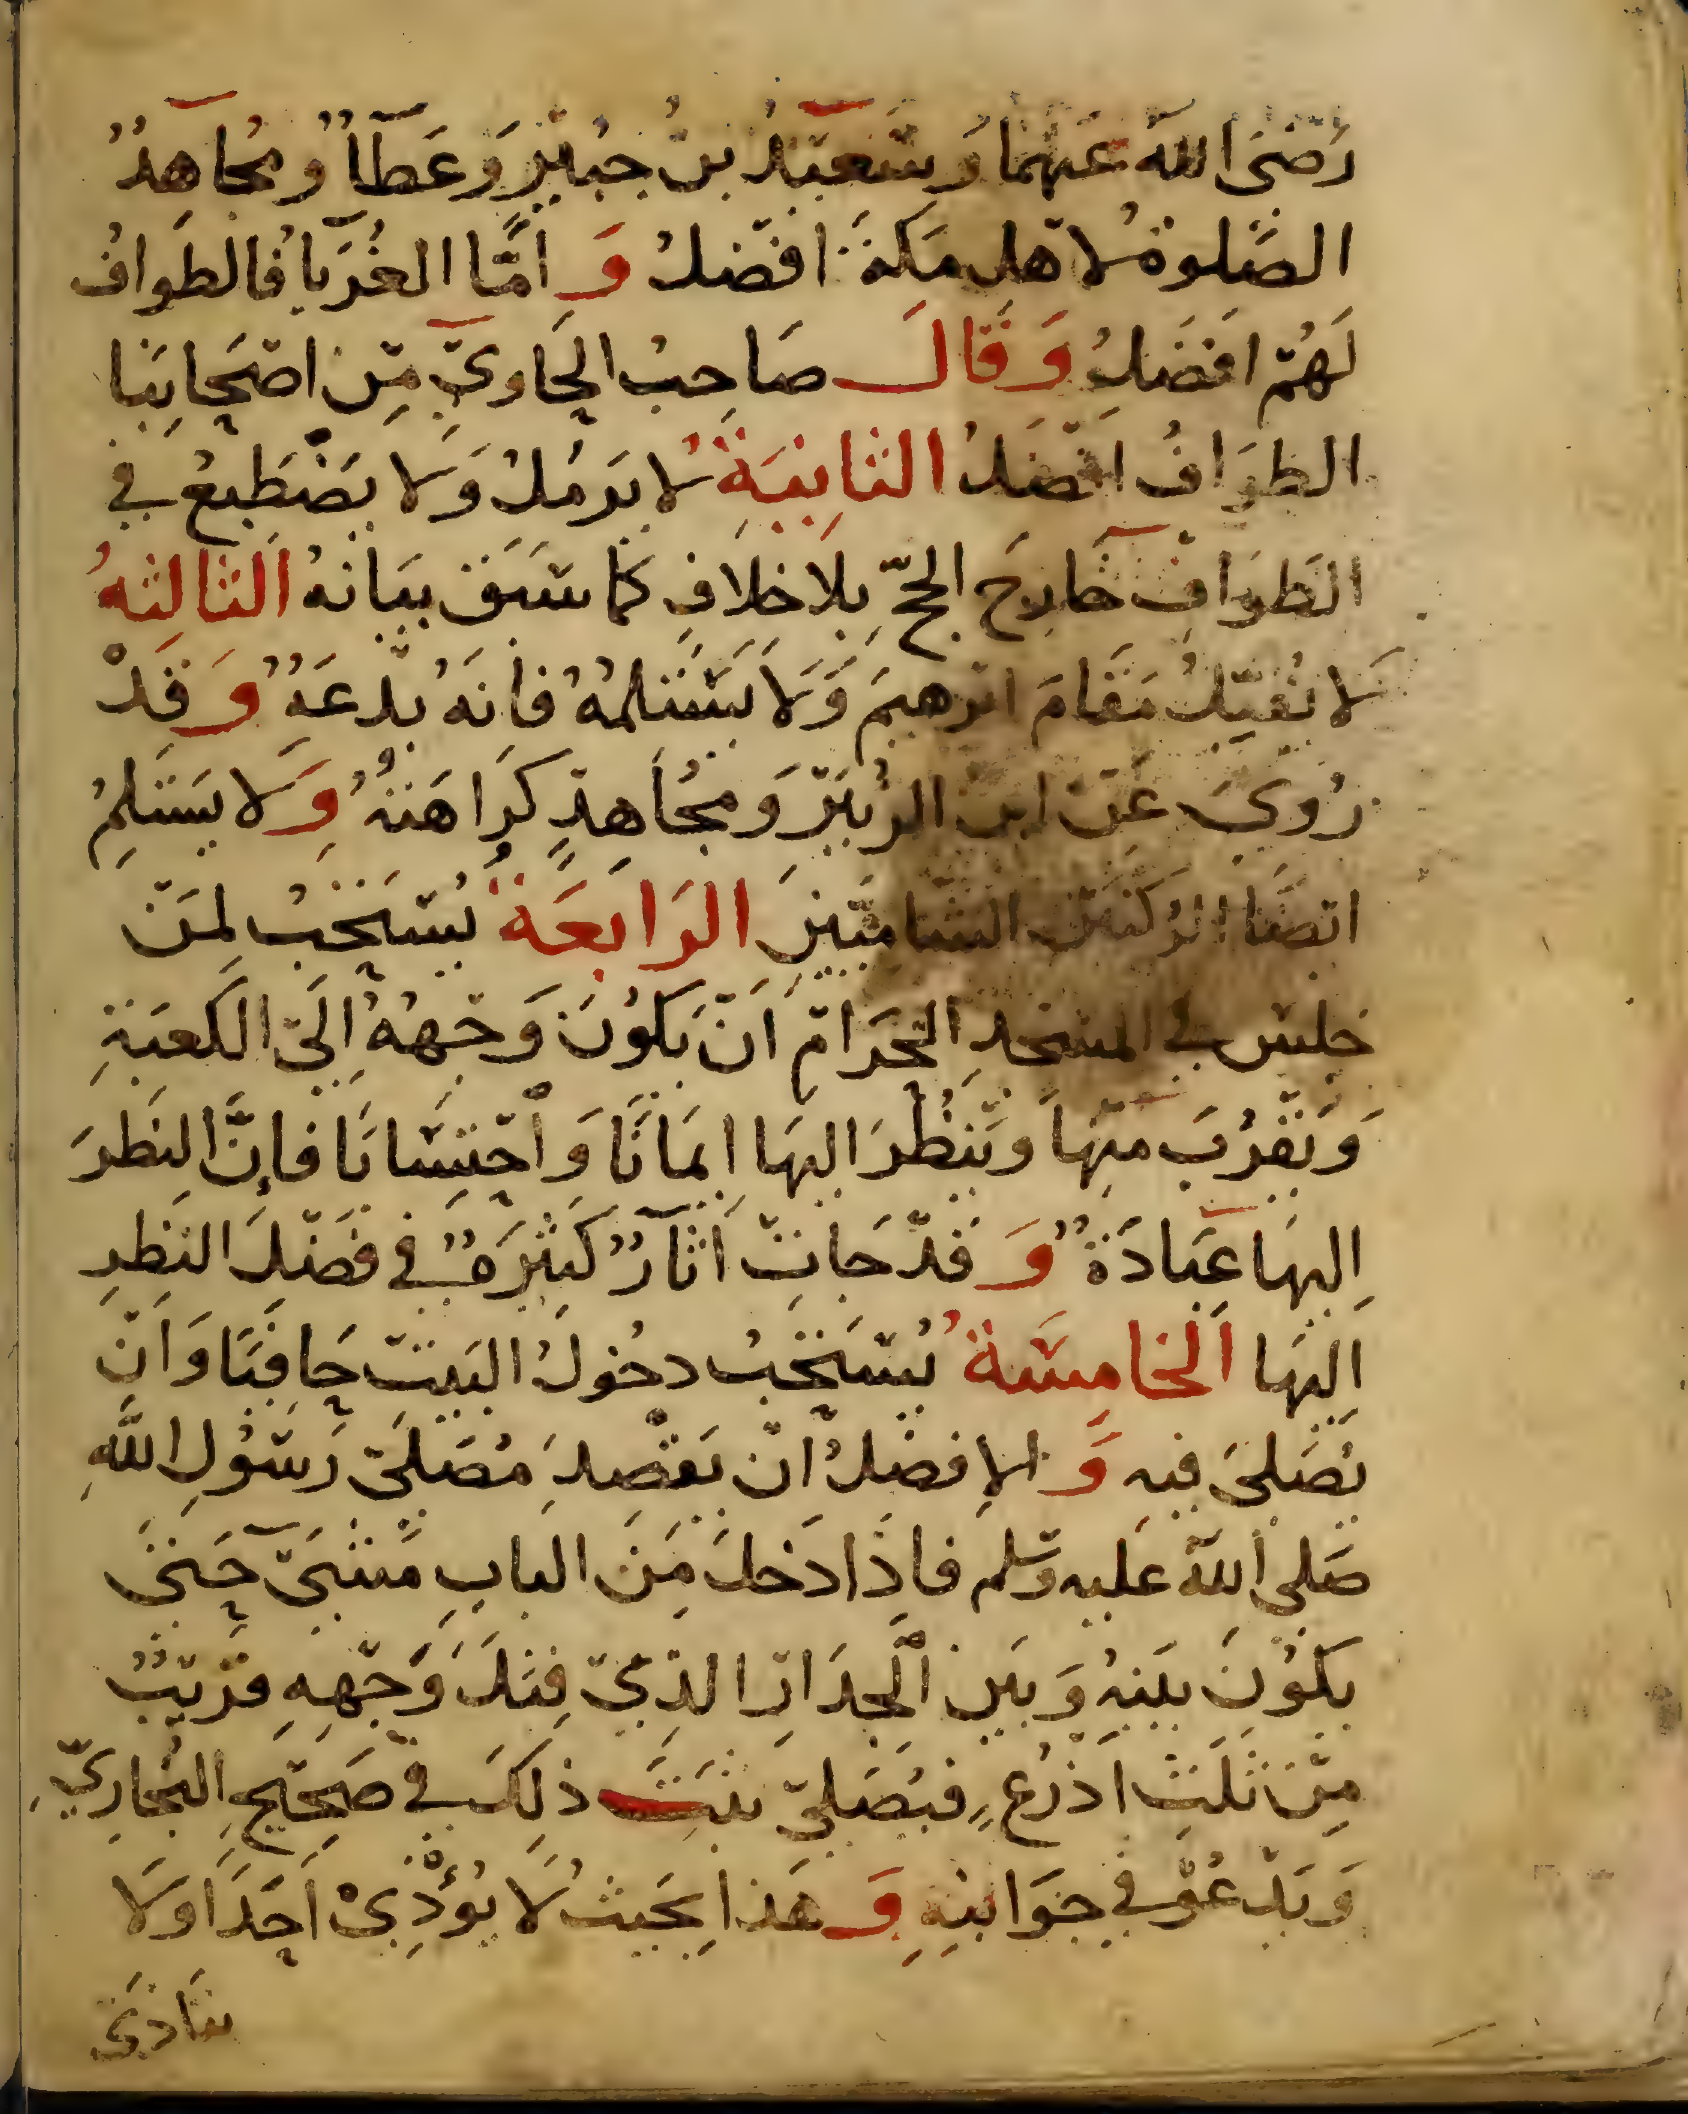 رَضَى الله عَنهُما وَسَعيْدُ بنُ جبُيْرٍ وَعَطَآءٌ ومُجَاهِدٌ
الصَّلوةُ لاهل مَكةَ افضلُ وَ امَّا الغُرَبَاءُ فالطوافُ
لَهُمْ افضَلُ وَقَالَ صَاحِبُ الحَاوىْ مِنْ اصْحَابِنا
الطوَافُ افْضَلُ الثانِيَةُ لا يَرمُلُ وَلا يَضْطَبِعُ في
الطوَافِ خَارِجَ الحجّ بلا خلافٍ كما سَبَق بيَانهُ الثالثهُ
لا يُقبِّلُ مَقامَ ابرهيمَ وَلا يَسْتلمهُ فانهُ بدعَةٌ وَقَدْ
رُوىَ عَن ابن الزُبَيْرِ وَمجُاهدٍ كَرَاهَتهُ وَلا يسْتَلِمُ
ايضًا الرُكنَيْن الشامِيّينِ الرَابعَةُ يُستَحَبُ لِمَنْ
جلسَ في المسْجدِ الحَرَامْ اَنْ يَكوُنَ وَجْههُ اِلَى الكعبَةِ
وَيَقرُبَ منْهَا وَيَنظُرَ اليهَا ايمَانًا وَاحْتِسَابَا فَاِنَّ النظرَ
اِليهَا عِبَادَةٌ وَ قدْ جَاتْ اثآرٌ كثيْرَةٌ في فضْلِ النظرِ
اِليهَا اَلخامِسَةُ يُسْتَحَبُ دخُولُ البَيتْ حَافيَا وَاَنْ
يُصَلىَ فيهِ وَ الافضلُ انْ يَقْصِدَ مُصَلىّ رَسُولِ اللَّهِ
صَلى الله عَليه وسَلم فاذَا دَخلَ مِنَ البابِ مَشَىْ حَتىَ
يَكوُنَ بينهُ وَبَين الْجِدَارِ الذِىْ قِبَلَ وَجْهِهِ قرَيْبٌ
مِّنْ ثَلَثِ اَذْرُعٍ فيُصَلىّ ثبَتَ ذلِكَ في صَحِيْحِ البُخارِيّ
وَيَدْعُو في جوَانبهِ وَ هَذا بِحَيثُ لَا يُؤْذِىْ اَحَدًا وَلا
يتاذى